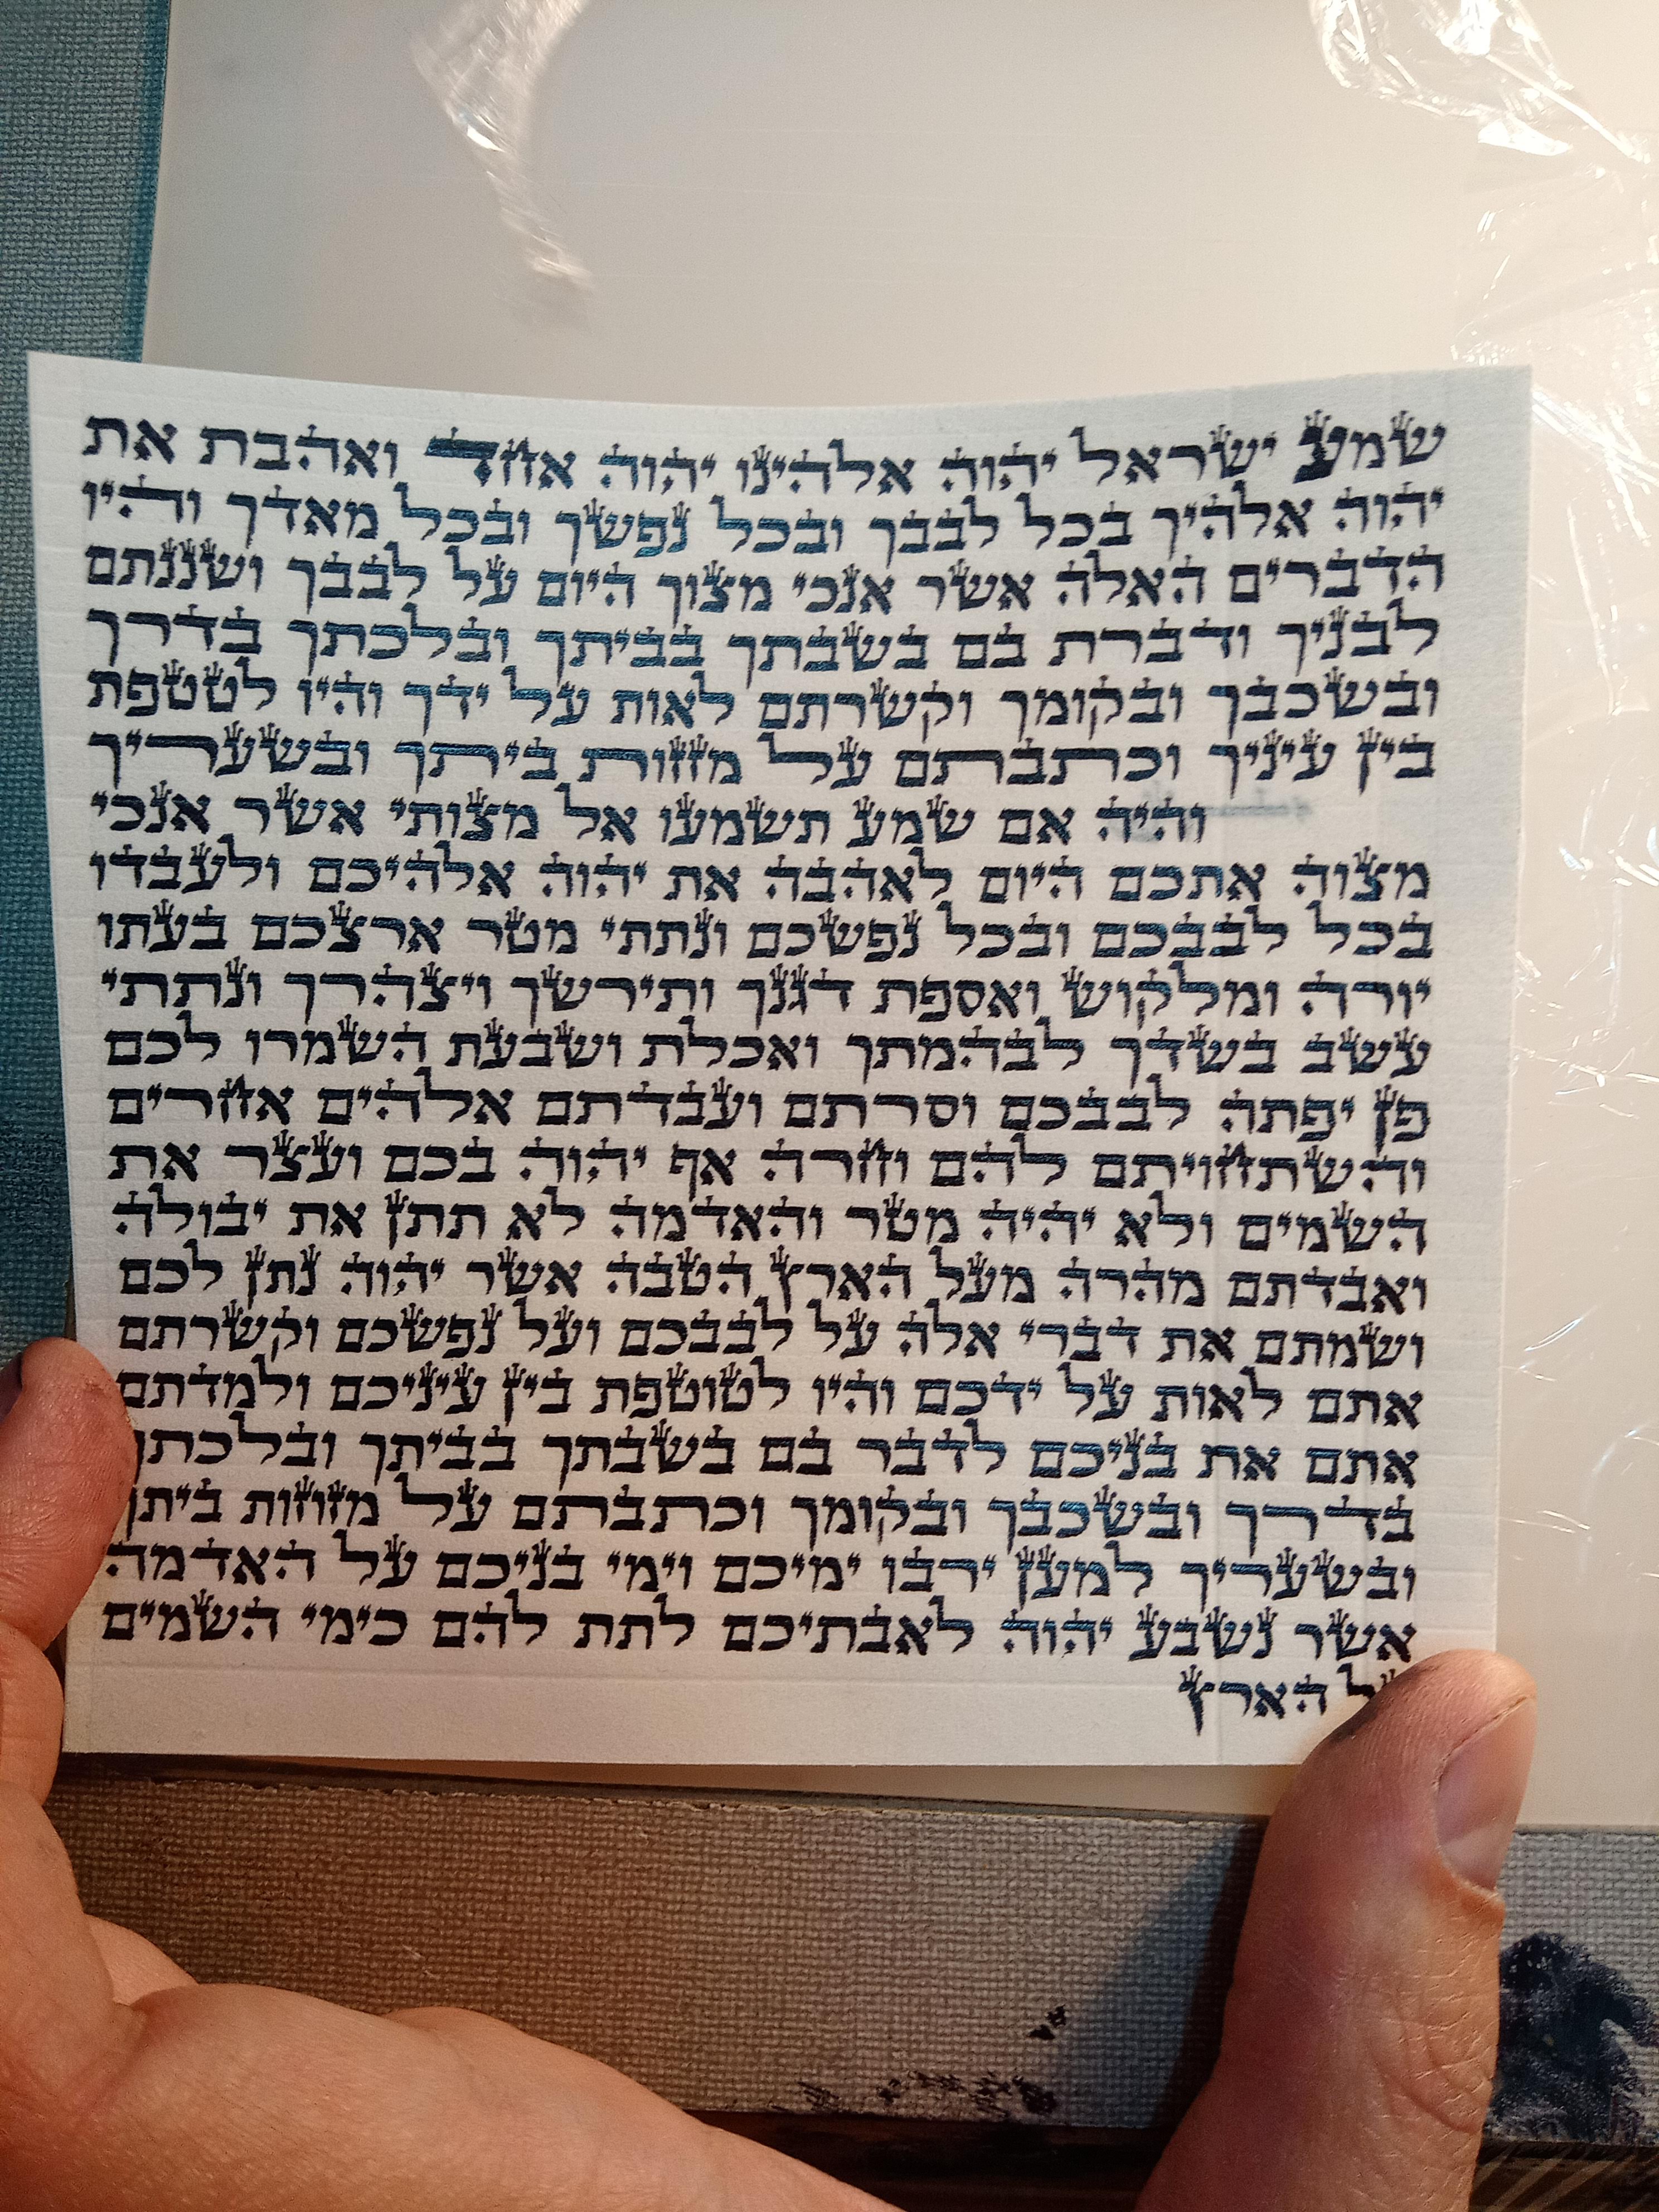 שמע ישראל יהוה אלהינו יהוה אחד ואהבת את
יהוה אלהיך בכל לבבך ובכל נפשך ובכל מאדך והיו
הדברים האלה אשר אנכי מצוך היום על לבבך ושננתם
לבניך ודברת בם בשבתך בביתך ובלכתך בדרך
ובשכבך ובקומך וקשרתם לאות על ידך והיו לטטפת
בין עיניך וכתבתם על מזזות ביתך ובשעריך
והיה אם שמע תשמעו אל מצותי אשר אנכי
מצוה אתכם היום לאהבה את יהוה אלהיכם ולעבדו
בכל לבבכם ובכל נפשכם ונתתי מטר ארצכם בעתו
יורה ומלקוש ואספת דגנך ותירשך ויצהרך ונתתי
עשב בשדך לבהמתך ואכלת ושבעת השמרו לכם
פן יפתה לבבכם וסרתם ועבדתם אלהים אחרים
והשתחויתם להם וחרה אף יהוה בכם ועצר את
השמים ולא יהיה מטר והאדמה לא תתן את יבולה
ואבדתם מהרה מעל הארץ הטבה אשר יהוה נתן לכם
ושמתם את דברי אלה על לבבכם ועל נפשכם וקשרתם
אתם לאות על ידכם והיו לטוטפת בין עיניכם ולמדתם
אתם את בניכם לדבר בם בשבתך בביתך ובלכתך
בדרך ובשכבך ובקומך וכתבתם על מזוזות ביתך
ובשעריך למען ירבו ימיכם וימי בניכם על האדמה
אשר נשבע יהוה לאבתיכם לתת להם כימי השמים
הארץ